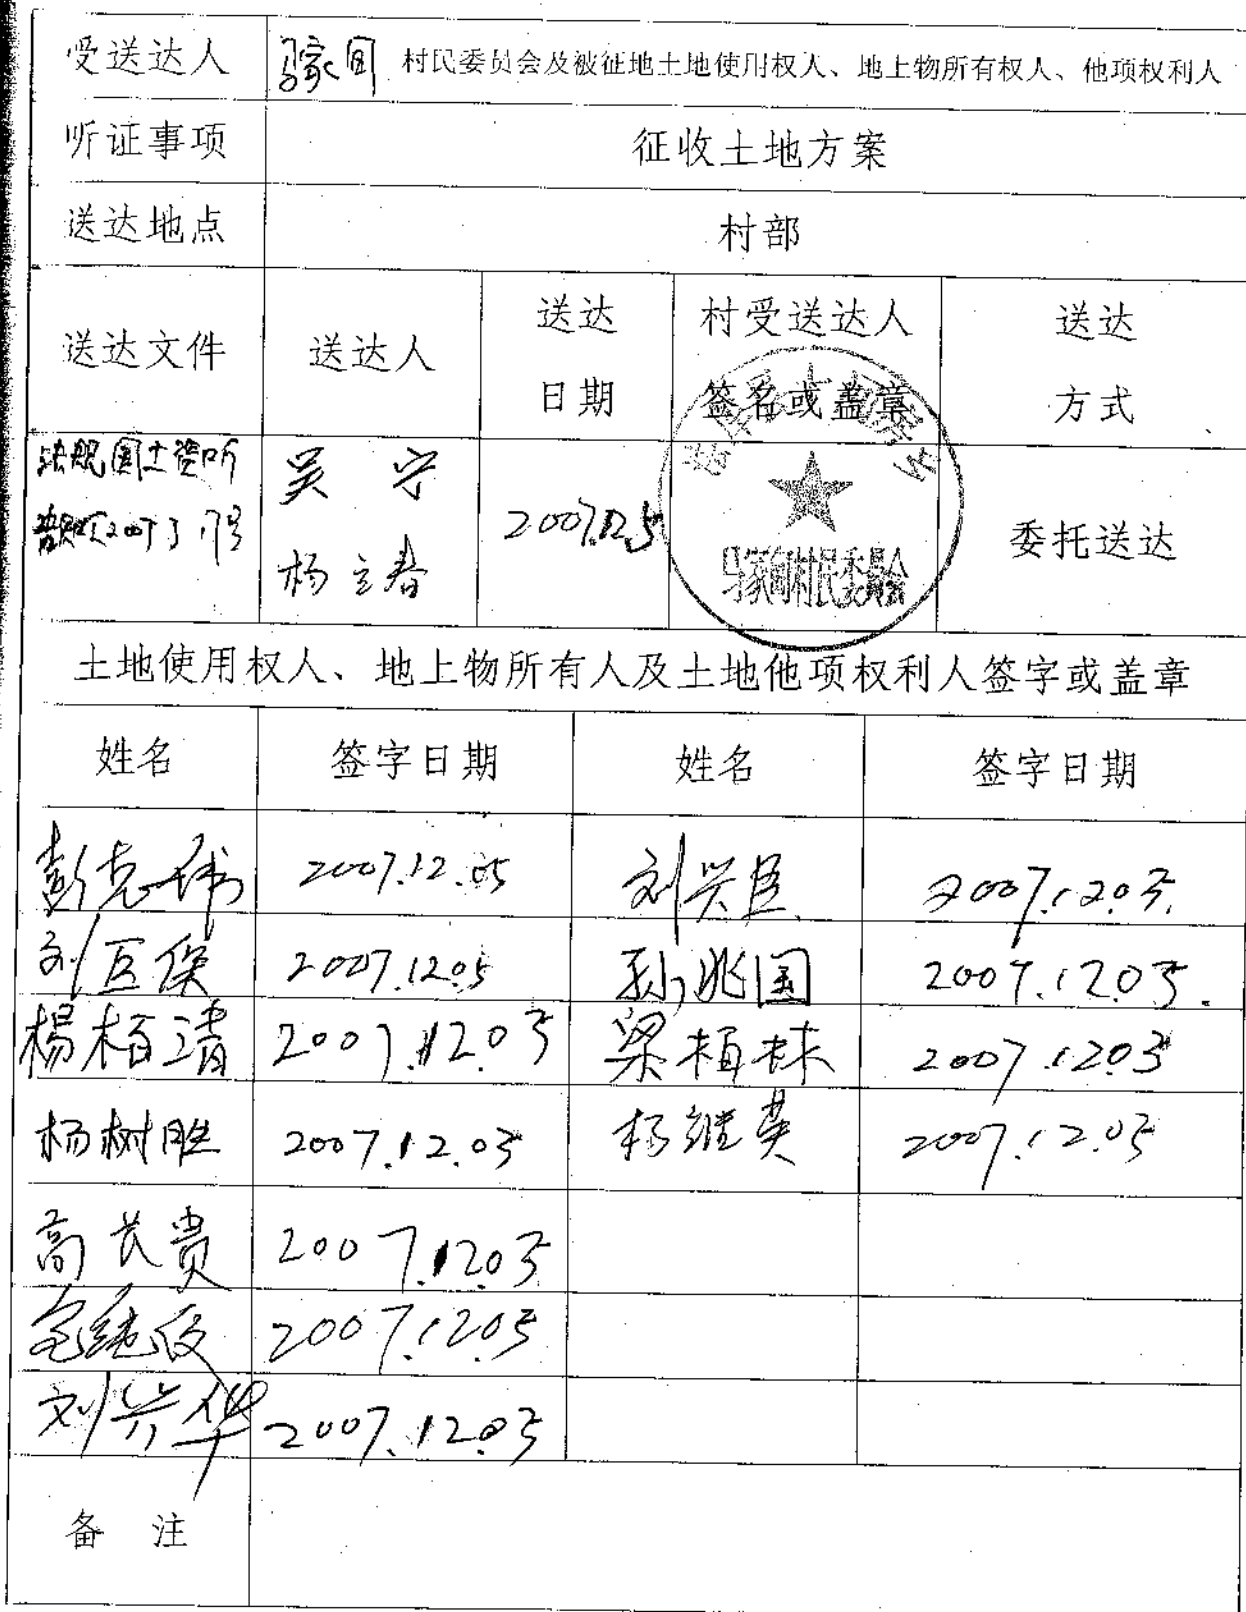 受送达人 马家囿 村民委员会及被征地土地使用权人、地上物所有权人、他项权利人
听证事项 征收土地方案
送达地点 村部
送达文件 送达人 送达日期 村受送达人签名或盖章 送达方式
国土资听
吴宁
杨立春
2007.12.5
村民委员会
委托送达
土地使用权人、地上物所有人及土地他项权利人签字或盖章
姓名 签字日期 姓名 签字日期
2007.12.05 刘兴臣 2007.12.05.
2007.12.05 孙兆国 2007.12.05.
楊柏清 2007.12.05 梁植林 2007.12.05
杨树胜 2007.12.05 杨继英 2007.12.05
高长贵 2007.12.05
2007.12.05
刘兴华 2007.12.05
备注